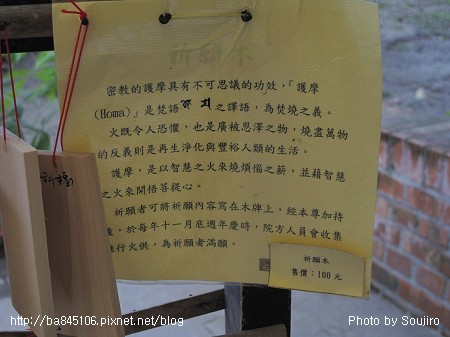 祈願木
密教的護摩具有不可思議的功效，「護摩
(Homa)」是梵語 之譯語，為焚燒之義。
火既令人恐懼，也是廣被恩澤之物，燒盡萬物
的反義則是再生淨化與豐裕人類的生活。
護摩，是以智慧之火來燒煩惱之薪，並藉智慧
之火來開悟菩提心。
祈願者可將祈願內容寫在木牌上，經本尊加持
後，於每年十一月底週年慶時，院方人員會收集
進行火供，為祈願者滿願。
祈願木
售價：100元
祈福
http://ba845106.pixnet.net/blog
Photo by Soujiro